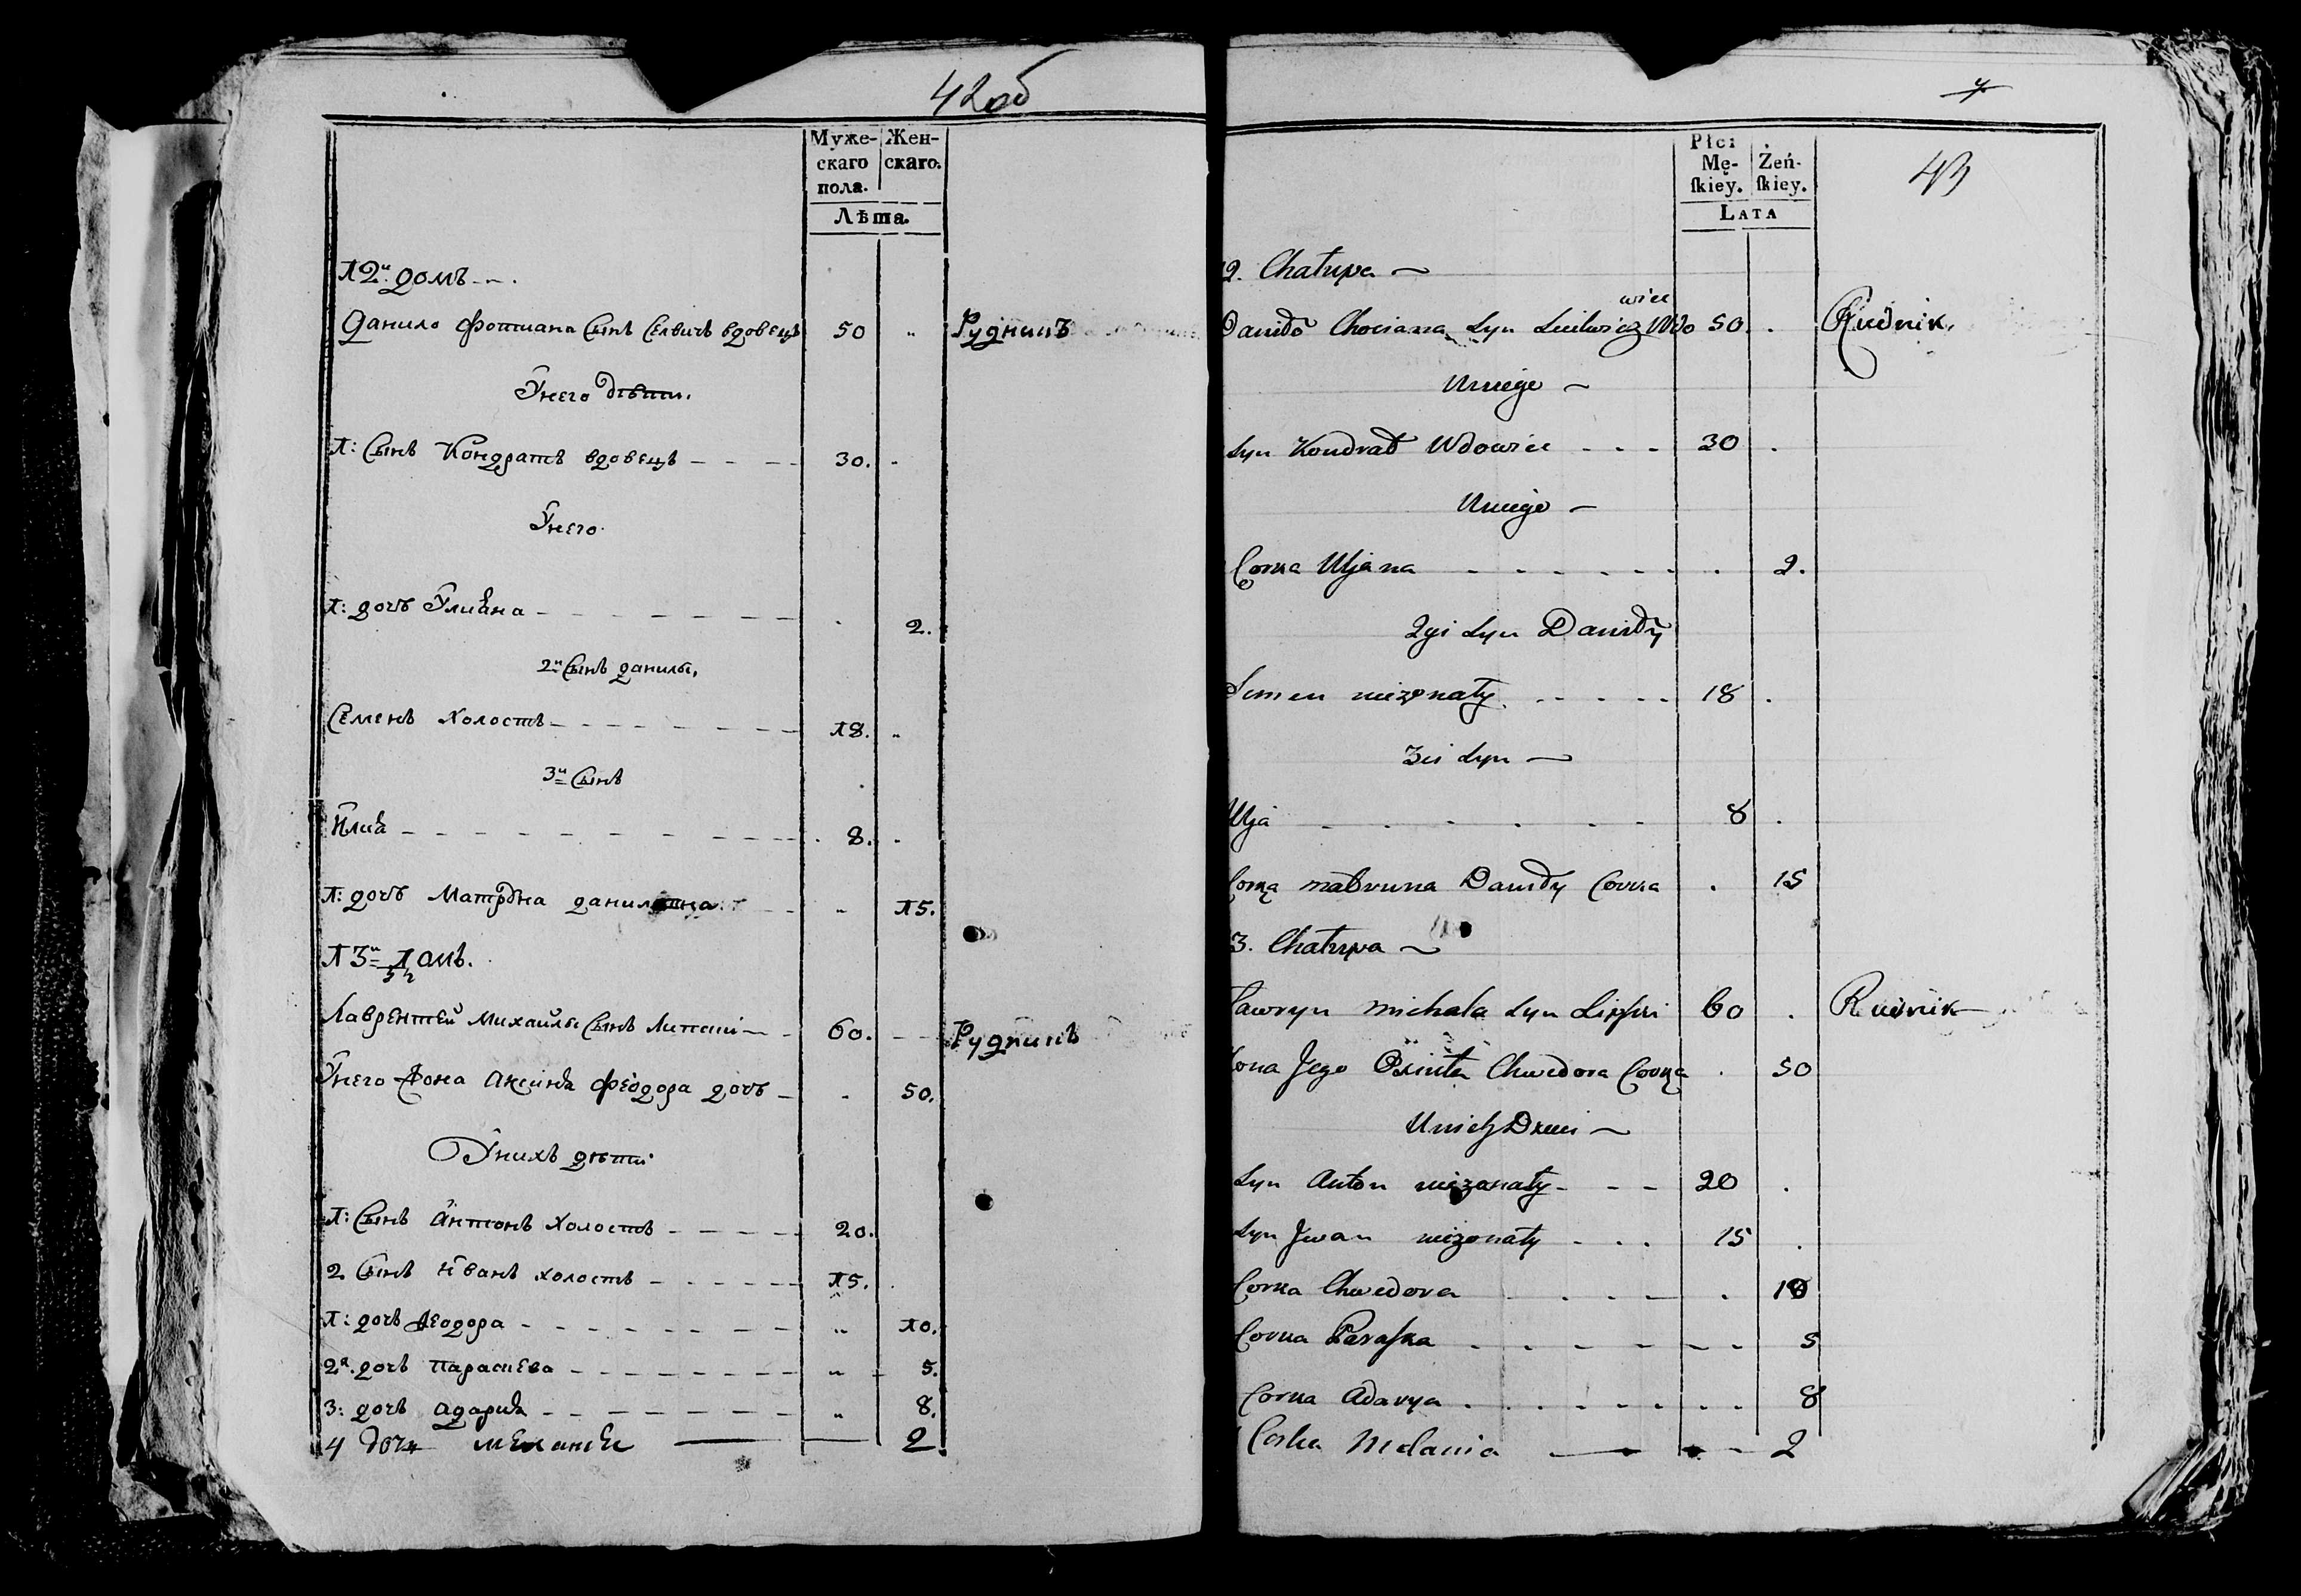 42об
Муже-скаго пола. Жен-скаго.
Лѣта.
12й домъ
Данило Фотиана Сынъ вдовецъ 50 Рудникъ
Унего дѣти.
1: Сынъ Кондратъ вдовецъ 30.
Унего.
1: дочь Улиана 2.
2й Сынъ данилы,
Семенъ Холостъ 18.
3й Сынъ
Илиа 8.
1: дочь Матрона 15.
13й домъ.
Лаврентей Михайлы Сынъ Липскій 60. Рудникъ
Унего жона Аксиніа Феодора дочь 50.
Унихъ дѣти
1: Сынъ Антонъ Холостъ 20.
2 Сынъ Иванъ холостъ 15.
1: дочь Феодора 10.
2я. дочь Параскева 5.
3: дочь Адариа 8.
4 дочь Меланія 2
4
43
Płci Mę-ſkiey. Żeń-ſkiey.
LATA
2. Chałupa
Daniło Chociana Syn Wdo wiec 50 Rudnik
Uniego
Syn Kondrat Wdowiec 30
Uniego
Corka Uljana 2.
2gi Syn Daniły
Semen nieżonaty 18
3ci Syn
Ilja 8
Corka Matruna Daniły Corka 15
3. Chałupa
Ławryn Michała Syn Lipski 60 Rudnik
żona Jego Oxinia Chwedora Corka 50
Unich Dzieci
Syn Anton nieżonaty 20
Syn Jwan nieżonaty 15
Corka Chwedora 10
Corka Paraſka 5
Corka Adarya 8
Corka Melania 2